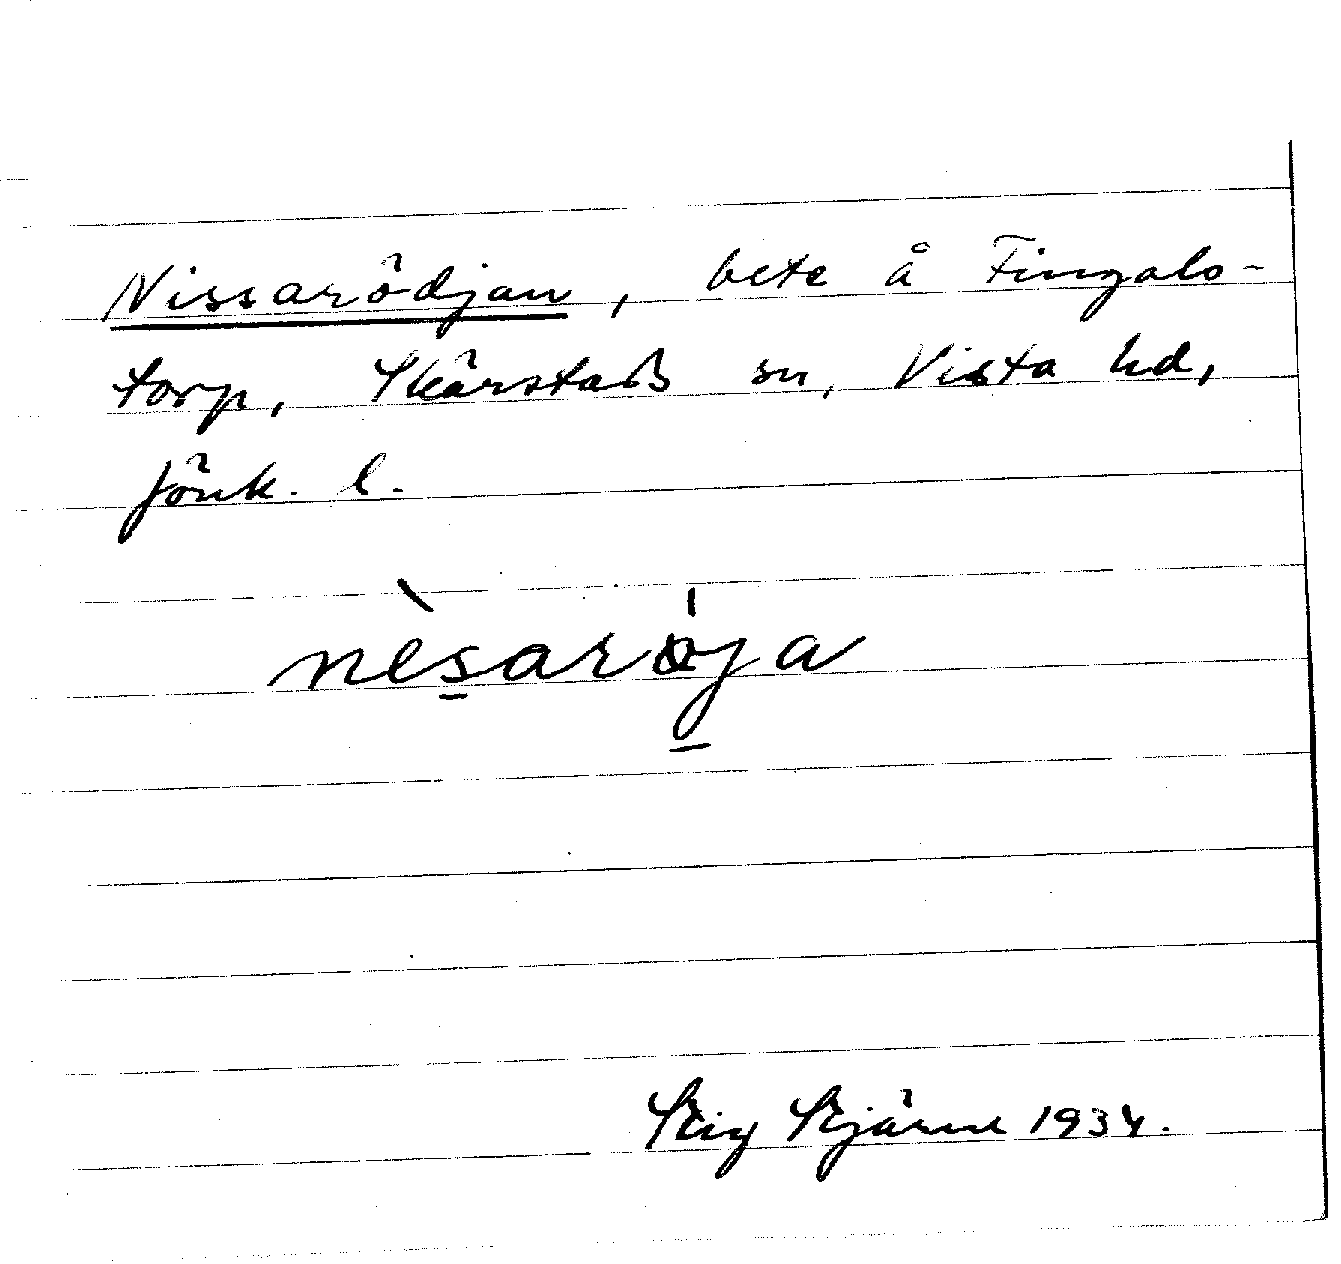 Nissarödjan, bete å Fingals-
torp, Skärstads sn, Vista hd,
Jönk. l.
nèsarǿja
Stig Stjärne 1934.